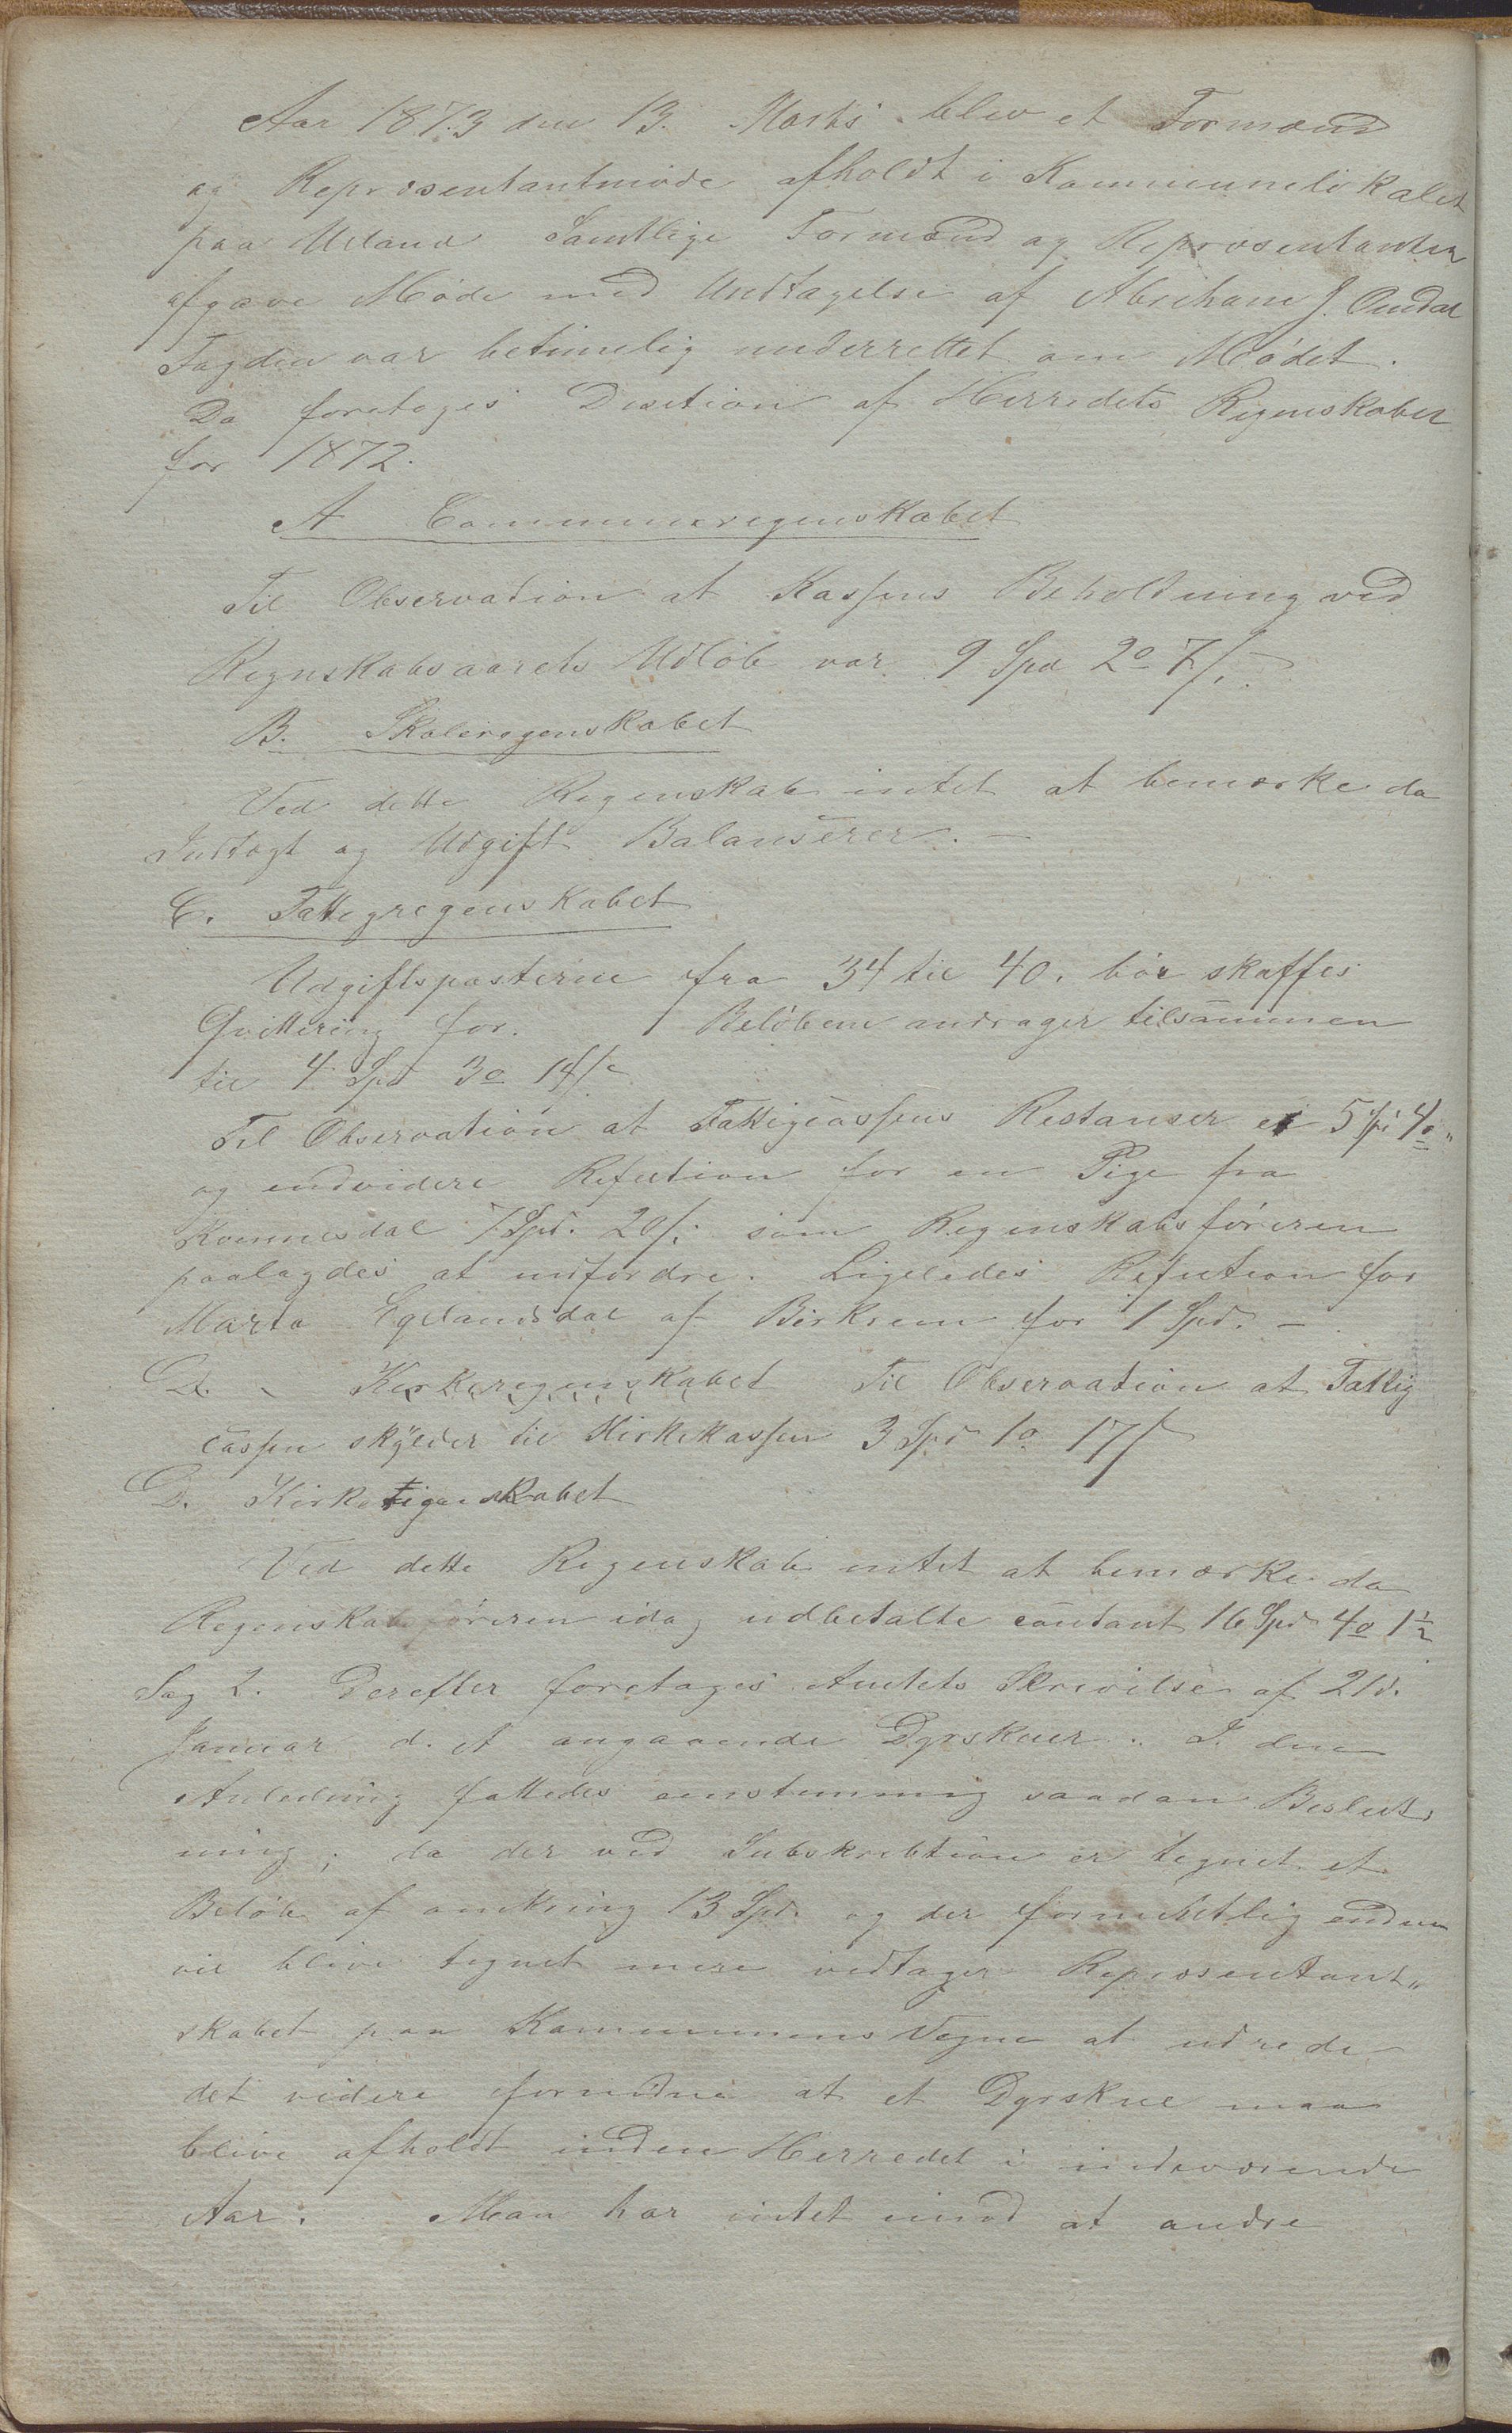 Aar 1873 den 13. Marts blev et Formænd
og Repræsentantmøde afholdt i Kommunelokalet
paa Ueland Samtlige Formænd og Repræsentanter
afgave Møde med Undtagelse af Abraham J. Omdal
Fogden var betimelig underrettet om Mødet.
Da foretoges Desition af Herredets Regenskaber
for 1872.
A Communeregenskabet
Til Observation at Kassens Beholdning ved
Regnskabsaarets Udløb var 9 Spd 2o 7/.
B. Skoleregenskabet
Ved dette Regenskab intet at bemærke da
Indtægt og Udgift Balanserer. —
C. Fattigregenskabet
Udgiftsposterne fra 34 til 40. bør skaffes
Qvittering for. Beløbene andrager tilsammen
til 4 Spd 3o 14/
Til Observation at Fattigcassens Restanser er 5 Sp 4o„
og endvidere Refution for en Pige fra
7 Spd. 20/. som Regenskabsføreren
paalagdes at indfordre. Ligeledes Refution for
Marta Egelandsdal af Birkrem for 1 Spd. —
D. Kirkeregenskabet Til Observation at Fattig
cassen skylder til Kirkekassen 3 Spd 1o 17/
D. Kirkeregenskabet
Ved dette Regenskab intet at bemærke da
Regenskabsføreren idag udbetalte contant 16 Spd 4o 1½
Sag 2. Derefter foretoges Amtets Skrivelse af 21d.
Januar d. A angaaende Dyrskuer. I den
Anledning fattedes enstemmig saadan Beslut,
ning; da der ved Subskribtion er tegnet et
Beløb af omkring 13 Spd. og der formentlig endnu
vil blive tegnet mere vedtager Repræsentant„
skabet paa Kommunens Vegne at udrede
det videre fornødne at et Dyrskue maa
blive afholdt inden Herredet i indeværende
Aar. Man har intet imod at andre